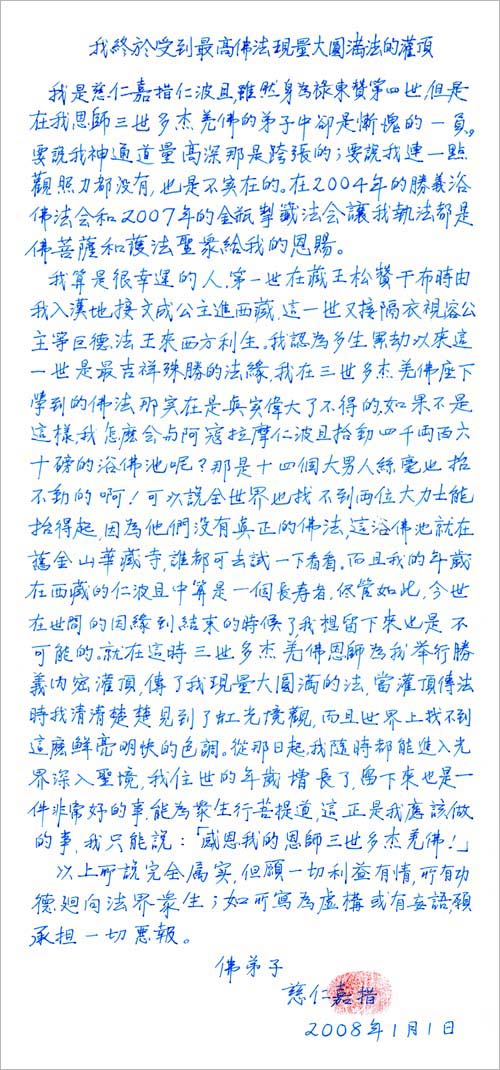 我終於受到最高佛法現量大圓滿法的灌頂
我是慈仁嘉措仁波且,雖然身為祿東贊第四世,但是
在我恩師三世多杰羌佛的弟子中卻是慚愧的一員。
要說我神通道量高深那是誇張的;要說我連一點
觀照力都没有,也是不实在的。在2004年的勝義浴
佛法会和2007年的金瓶掣籤法会讓我執法都是
佛菩薩和護法聖衆給我的恩賜。
我算是很幸運的人,第一世在藏王松贊干布時由
我入漢地接文成公主進西藏,這一世又接隔衣視容公
主寧巨德法王來西方利生。我認為多生累劫以來這
一世是最吉祥殊勝的法緣,我在三世多杰羌佛座下
學到的佛法那实在是真实偉大了不得的,如果不是
這樣,我怎麽会与阿寇拉摩仁波且抬動四千兩百六
十磅的浴佛池呢?那是十四個大男人絲毫也抬
不動的啊!可以說全世界也找不到兩位大力士能
抬得起,因為他們沒有真正的佛法,這浴佛池就在
舊金山華藏寺,誰都可去試一下看看。而且我的年歲
在西藏的仁波且中算是一個長寿者,侭管如此,今世
在世間的因緣到結束的時候了,我想留下來也是不
可能的。就在這時三世多杰羌佛恩師為我举行勝
義内密灌頂,傳了我現量大圓滿的法,當灌頂傳法
時我清清楚楚見到了虹光境觀,而且世界上找不到
這麽鮮亮明快的色調。從那日起,我隨時都能進入光
界深入聖境,我住世的年歲增長了,留下來也是一
件非常好的事,能為衆生行菩提道,這正是我應該做
的事,我只能說:「感恩我的恩師三世多杰羌佛!」
以上所說完全属实,但願一切利益有情,所有功
德廻向法界衆生;如所寫為虛構或有妄語,願
承担一切惡報。
佛弟子
慈仁嘉措
2008年1月1日